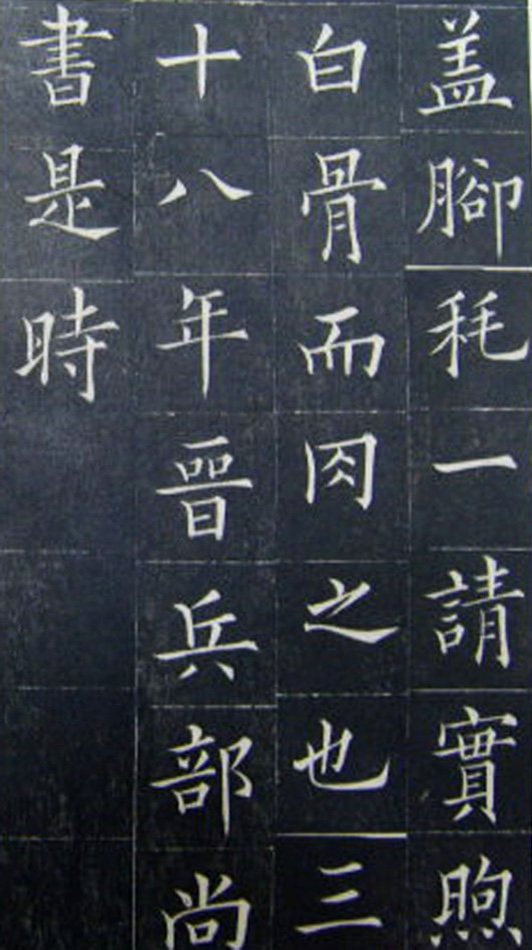 盖腳秏一請實煦
白骨而肉之也三
十八年晉兵部尚
書是時